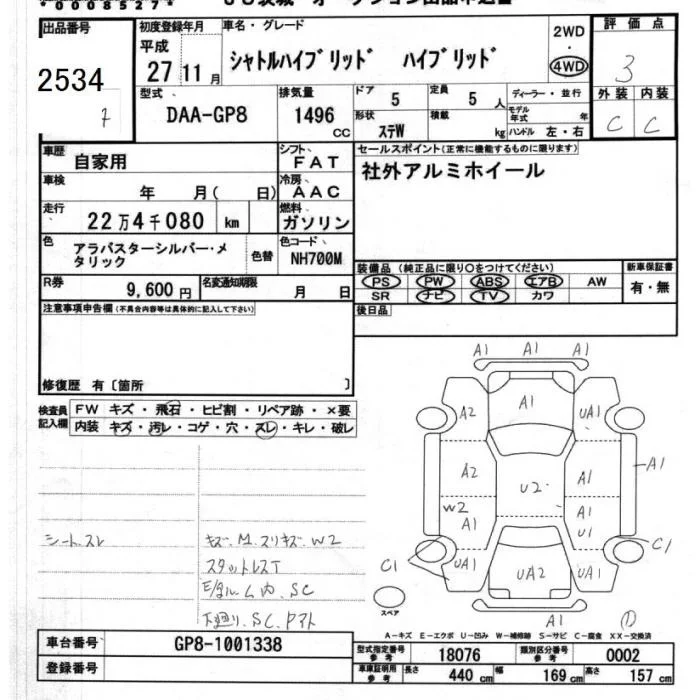 *0008527*
出品番号
2534
7
初度登録年月
平成
27 11 月
車名・グレード
シャトルハイブリッド ハイブリッド
2WD
・
4WD
評価点
3
外装 内装
C C
型式
DAA-GP8
排気量
1496
CC
ドア
5
定員
5 人
形状
ステW
積載
kg
ディーラー・並行
モデル年式 年
ハンドル 左・右
車歴
自家用
シフト
FAT
セールスポイント(正常に機能するものに限ります)
社外アルミホイール
車検
年 月( 日)
冷房
AAC
走行
22万4千080 km
燃料
ガソリン
色
アラバスターシルバー・メタリック
色替
色コード
NH700M
装備品(純正品に限り○をつけてください)
PS PW ABS エアB AW
SR ナビ TV カワ
新車保証書
有・無
R券
9,600 円
名変通知期限
月 日
後日品
注意事項申告欄(不具合内容等は具体的に記入して下さい)
修復歴 有〔箇所 〕
検査員記入欄
FW キズ・飛石・ヒビ割・リペア跡・×要
内装 キズ・汚レ・コゲ・穴・スレ・キレ・破レ
シートスレ
キズ.M.スリキズ.W2
スタットレスT
下廻り.SC.Pアト
A1 A1 A1
A2 A1 UA1
A2 U2 A1 A1
W2 A1 A1 U1
C1 UA1 UA2 UA1 C1
A1
スペア
(1)
A-キズ E-エクボ U-凹み W-補修跡 S-サビ C-腐食 XX-交換済
車台番号
GP8-1001338
登録番号
型式指定番号 参考
18076
類別区分番号 参考
0002
車庫証明用 参考
長さ 440 cm
幅 169 cm
高さ 157 cm